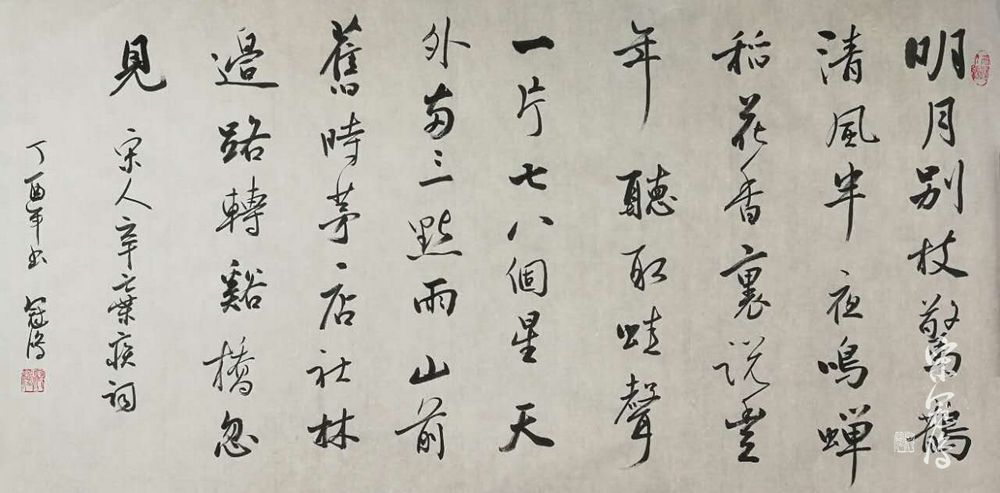 明月别枝驚鵲
清風半夜鳴蝉
稻花香裏説豐
年 聽取蛙聲
一片七八個星天
外两三點雨 山前
舊時茅店社林
邊路轉谿橋忽
見 宋人辛棄疾詞
丁酉年书